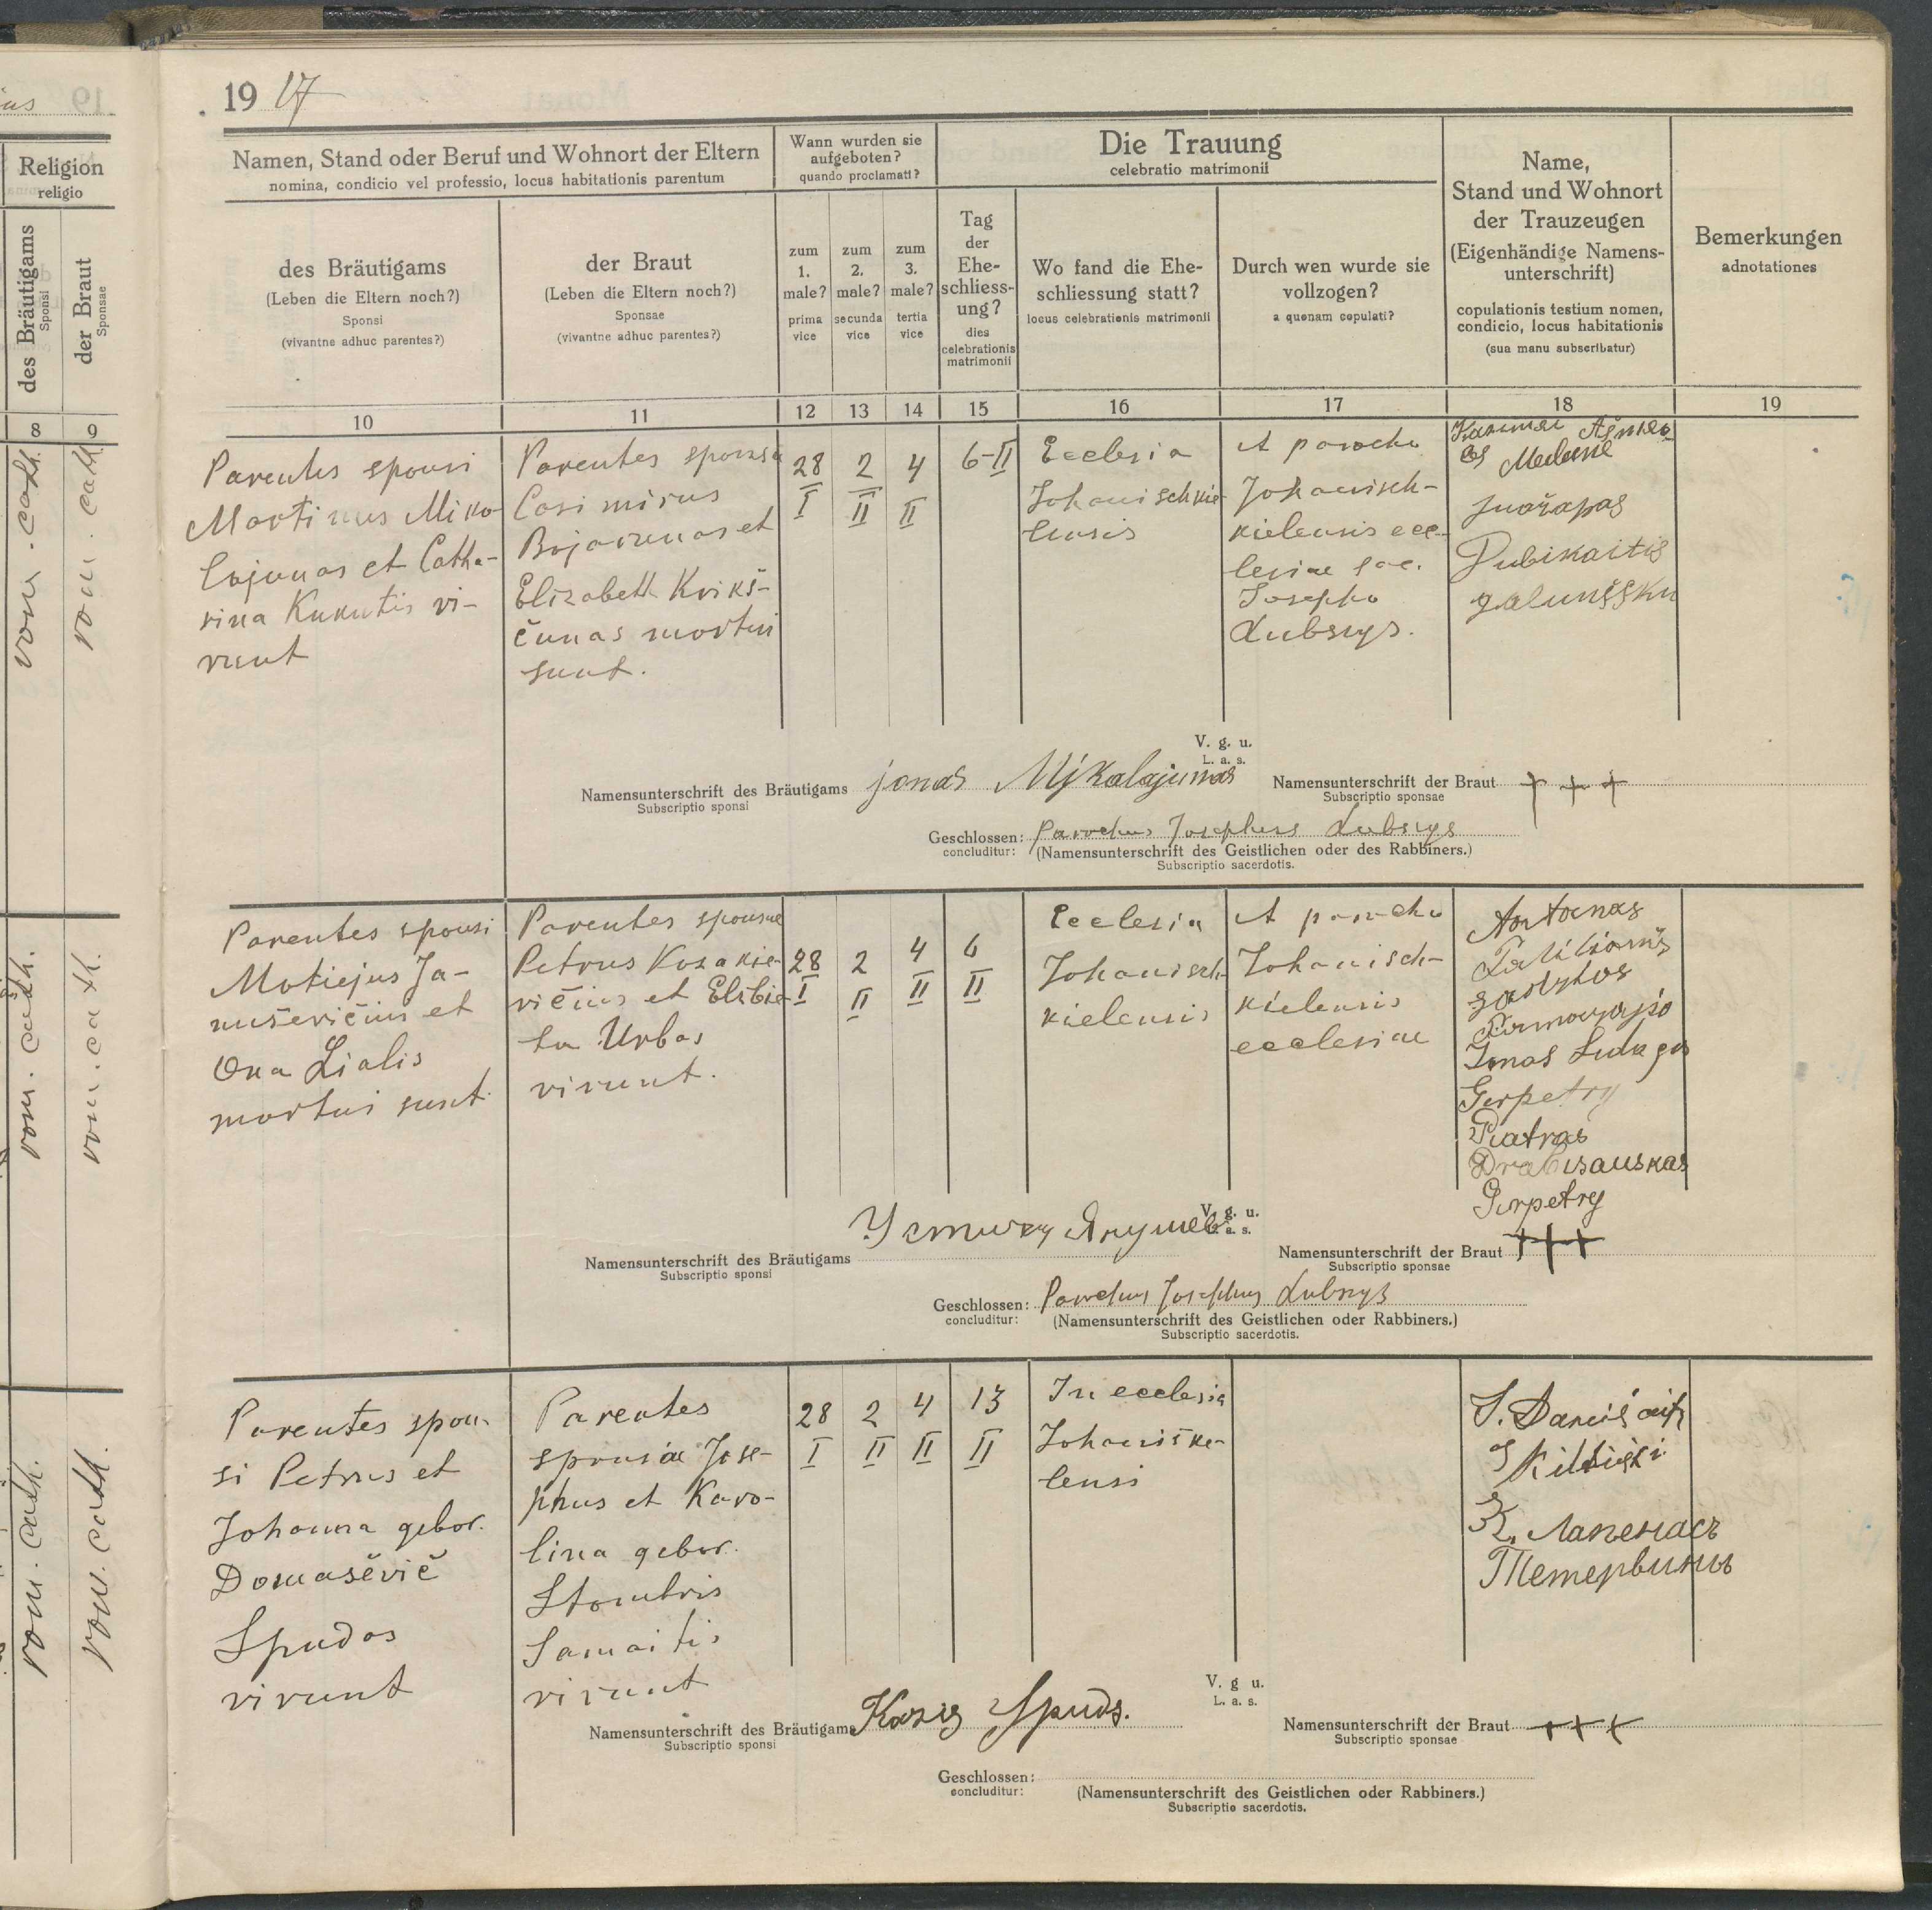 ius 19
19 17
Religion
religio
des Bräutigams
Sponsi
der Braut
Sponsae
8 9
rom. cath.
rom. cath.
rom. cath.
rom. cath.
rom. cath.
rom. cath.
Namen, Stand oder Beruf und Wohnort der Eltern
nomina, condicio vel professio, locus habitationis parentum
des Bräutigams
(Leben die Eltern noch?)
Sponsi
(vivantne adhuc parentes?)
der Braut
(Leben die Eltern noch?)
Sponsae
(vivantne adhuc parentes?)
Wann wurden sie
aufgeboten?
quando proclamati?
zum
1.
male?
prima
vice
zum
2.
male?
secunda
vice
zum
3.
male?
tertia
vice
Die Trauung
celebratio matrimonii
Tag
der
Ehe-
schliess-
ung?
dies
celebrationis
matrimonii
Wo fand die Ehe-
schliessung statt?
locus celebrationis matrimonii
Durch wen wurde sie
vollzogen?
a quonam copulati?
Name,
Stand und Wohnort
der Trauzeugen
(Eigenhändige Namens-
unterschrift)
copulationis testium nomen,
condicio, locus habitationis
(sua manu subscribatur)
Bemerkungen
adnotationes
10 11 12 13 14 15 16 17 18 19
Parentes sponsi
Martinus Miko-
lajunas et Catha-
rina Kukutis vi-
vunt
Parentes sponsae
Casimirus
Bojarunas et
Elizabeth Krikš-
čunas mortui
sunt.
28
I
2
II
4
II
6-II
Ecclesia
Johanischkie-
lensis
A parocho
Johanisch-
kielensis ecc-
lesiae sac.
Josepho
Lubsys.
Medune
Juozapas
Pubikaitis
V. g. u.
L. a. s.
Namensunterschrift des Bräutigams jonas Mikalajunas
Subscriptio sponsi
Namensunterschrift der Braut + + +
Subscriptio sponsae
Geschlossen: Parochus Josephus Lubsys
concluditur: (Namensunterschrift des Geistlichen oder des Rabbiners.)
Subscriptio sacerdotis.
Parentes sponsi
Motiejus Ja-
nuševičius et
Ona Lialis
mortui sunt.
Parentes sponsae
Petrus Kozakie-
vičius et Elzbie-
ta Urbas
vivunt.
28
I
2
II
4
II
6
II
Ecclesia
Johanisch-
kielensis
A parocho
Johanisch-
kielensis
ecclesiae
Antanas
Jonas
Gerpetry
Piatras
Drabisauskas
Gerpetry
V. g. u.
L. a. s.
Namensunterschrift des Bräutigams
Subscriptio sponsi
Namensunterschrift der Braut +++
Subscriptio sponsae
Geschlossen: Parochus Josephus Lubsys
concluditur: (Namensunterschrift des Geistlichen oder Rabbiners.)
Subscriptio sacerdotis.
Parentes spon-
si Petrus et
Johanna gebor.
Domaševič
Spudas
vivunt
Parentes
sponsae Jose-
phus et Karo-
lina gebor.
Stombris
Samaitis
vivunt
28
I
2
II
4
II
13
II
In ecclesia
Johaniške-
lensi
К. Лапенасъ
V. g u.
L. a. s.
Namensunterschrift des Bräutigams Kazis Spuds.
Subscriptio sponsi
Namensunterschrift der Braut +++
Subscriptio sponsae
Geschlossen:
concluditur: (Namensunterschrift des Geistlichen oder Rabbiners.)
Subscriptio sacerdotis.